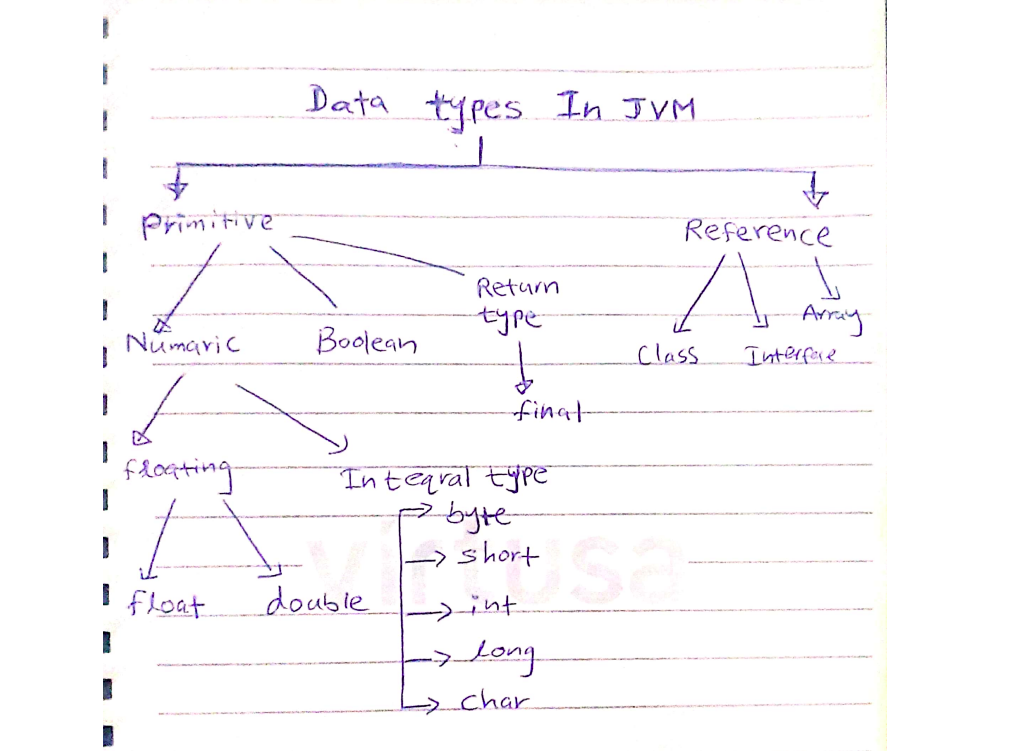 Data types In JVM
Primitive
Reference
Return
type
Array
Numaric
Boolean
Class
Interface
final
floating
Integral type
byte
short
virtusa
float
double
int
long
char